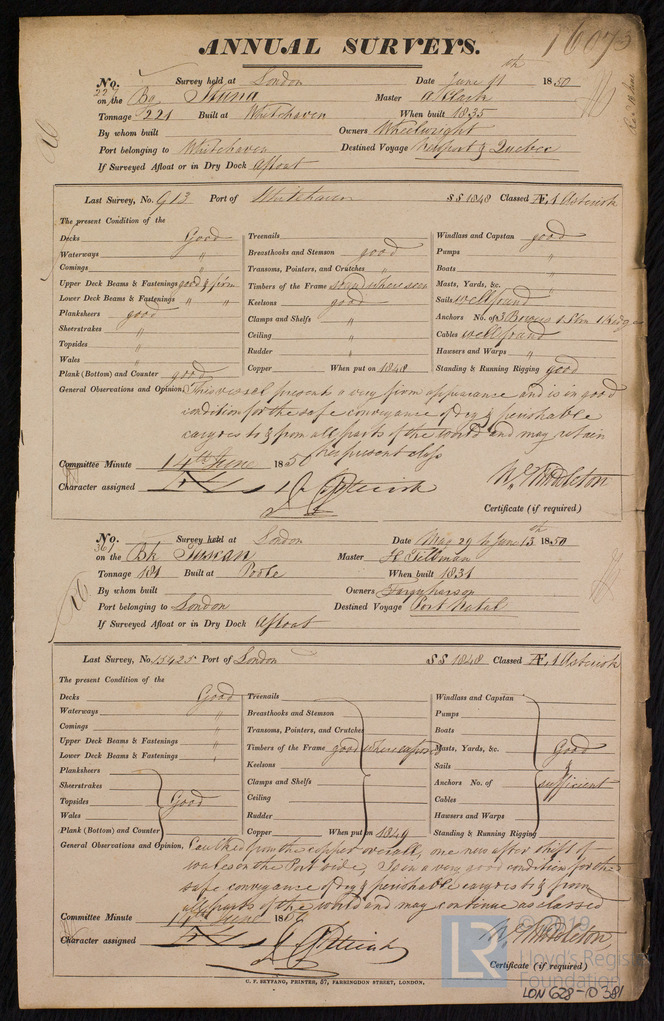 ANNUAL SURVEYS.
16073
No. 227 Survey held at London Date June 11th 1850
on the Bg Master A Clark
Tonnage 221 Built at Whitehaven When built 1835
By whom built Owners Wheelwright
Port belonging to Whitehaven Destined Voyage Newport & Quebec
If Surveyed Afloat or in Dry Dock Afloat
Last Survey, No. 913 Port of Whitehaven SS 1849 Classed Æ, 1 Asterisk
The present Condition of the
Decks Good Treenails Windlass and Capstan good
Waterways " Breasthooks and Stemson good Pumps "
Comings " Transoms, Pointers, and Crutches " Boats "
Upper Deck Beams & Fastenings good & firm Timbers of the Frame sound where seen Masts, Yards, &c. "
Lower Deck Beams & Fastenings " " Keelsons good Sails well found
Planksheers good Clamps and Shelfs " Anchors No. of 3 Bowers 1 Stm 1 Kedge
Sheerstrakes " Ceiling " Cables well found
Topsides " Rudder " Hawsers and Warps "
Wales " Copper When put on 1848 Standing & Running Rigging good
Plank (Bottom) and Counter good
General Observations and Opinion, This vessel presents a very firm appearance and is in good
condition for the safe conveyance of dry & perishable
cargoes to & from all parts of the world and may retain
her present class
Committee Minute 14th June 1850
Character assigned
Wm Middleton
Certificate (if required)
No. 361 Survey held at London Date May 29 to June 13th 1850
on the Bk Tuscan Master H Tillman
Tonnage 181 Built at Poole When built 1831
By whom built Owners Farquharson
Port belonging to London Destined Voyage Port Natal
If Surveyed Afloat or in Dry Dock Afloat
Last Survey, No. 15425 Port of London SS 1848 Classed Æ, 1 Asterisk
The present Condition of the
Decks Good Treenails Windlass and Capstan
Waterways " Breasthooks and Stemson Pumps
Comings " Transoms, Pointers, and Crutches Boats
Upper Deck Beams & Fastenings " Timbers of the Frame good where exposed Masts, Yards, &c. Good
Lower Deck Beams & Fastenings " Keelsons Sails &
Planksheers Clamps and Shelfs Anchors No. of sufficient
Sheerstrakes Ceiling Cables
Topsides Good Rudder Hawsers and Warps
Wales Copper When put on 1849 Standing & Running Rigging
Plank (Bottom) and Counter
General Observations and Opinion, Caulked from the copper overall, one new after shift of
wales on the Port side, Is in a very good condition for the
safe conveyance of dry & perishable cargoes to & from
all parts of the world and may continue as classed
Committee Minute 14th June 1850
Character assigned
Wm Middleton
Certificate (if required)
C. F. SEYFANG, PRINTER, 57, FARRINGDON STREET, LONDON,
LR © 2019
Lloyd's Register
Foundation
LON 628-0381